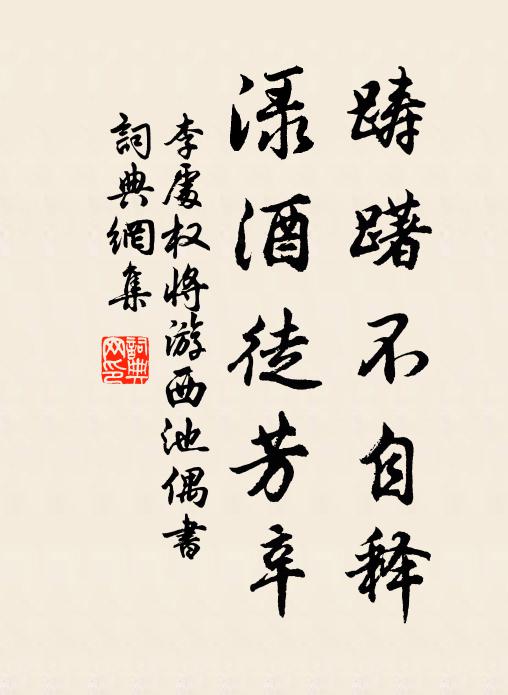 踌躇不自释
渌酒徒芳辛
李處权将游西池偶書
詞典網集
詞典網印